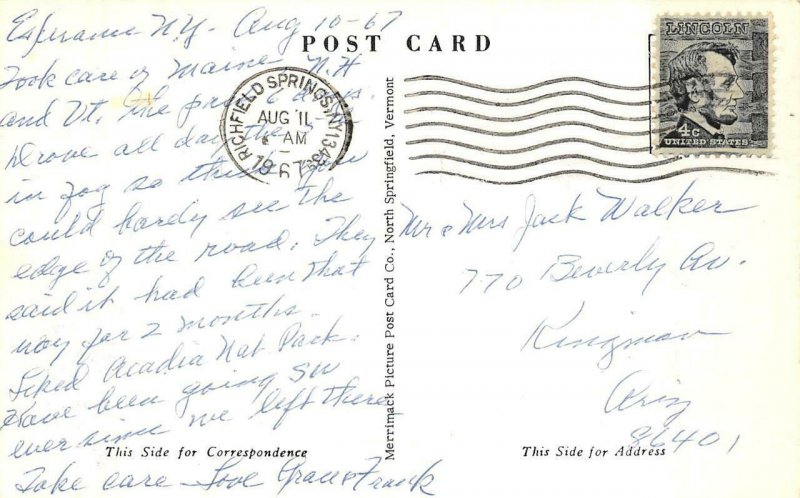 Esperance N.Y. Aug 10-67
POST CARD
Took care of Maine, N.H.
and Vt. the past 6 days.
Drove all day thru
in fog so thick you
could hardly see the
edge of the road. They
said it had been that
way for 2 months.
Liked Acadia Nat Park.
Have been going SW
ever since we left there
Take care - Love Grace & Frank
This Side for Correspondence
RICHFIELD SPRINGS, NY 13439
AUG 11
AM
1967
Merrimack Picture Post Card Co., North Springfield, Vermont
LINCOLN
4c
UNITED STATES
Mr & Mrs Jack Walker
770 Beverly Av.
Kingman
Ariz
86401
This Side for Address